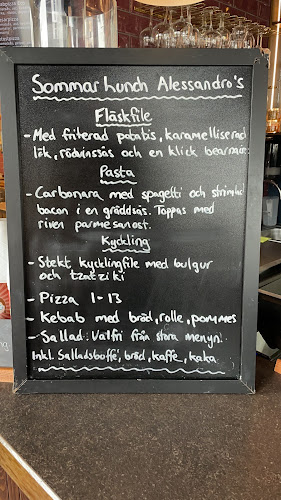 Sommar lunch Alessandro's
Fläskfile
- Med friterad potatis, karamelliserad
lök, rödvinssås och en klick bearnaise.
Pasta
- Carbonara med spagetti och strimlad
bacon i en gräddsås. Toppas med
riven parmesanost.
Kyckling
- Stekt kycklingfile med bulgur
och tzatziki
- Pizza 1-13
- Kebab med bröd, rolle, pommes
- Sallad. Valfri från stora menyn.
Inkl. Salladsboffé, bröd, kaffe, kaka